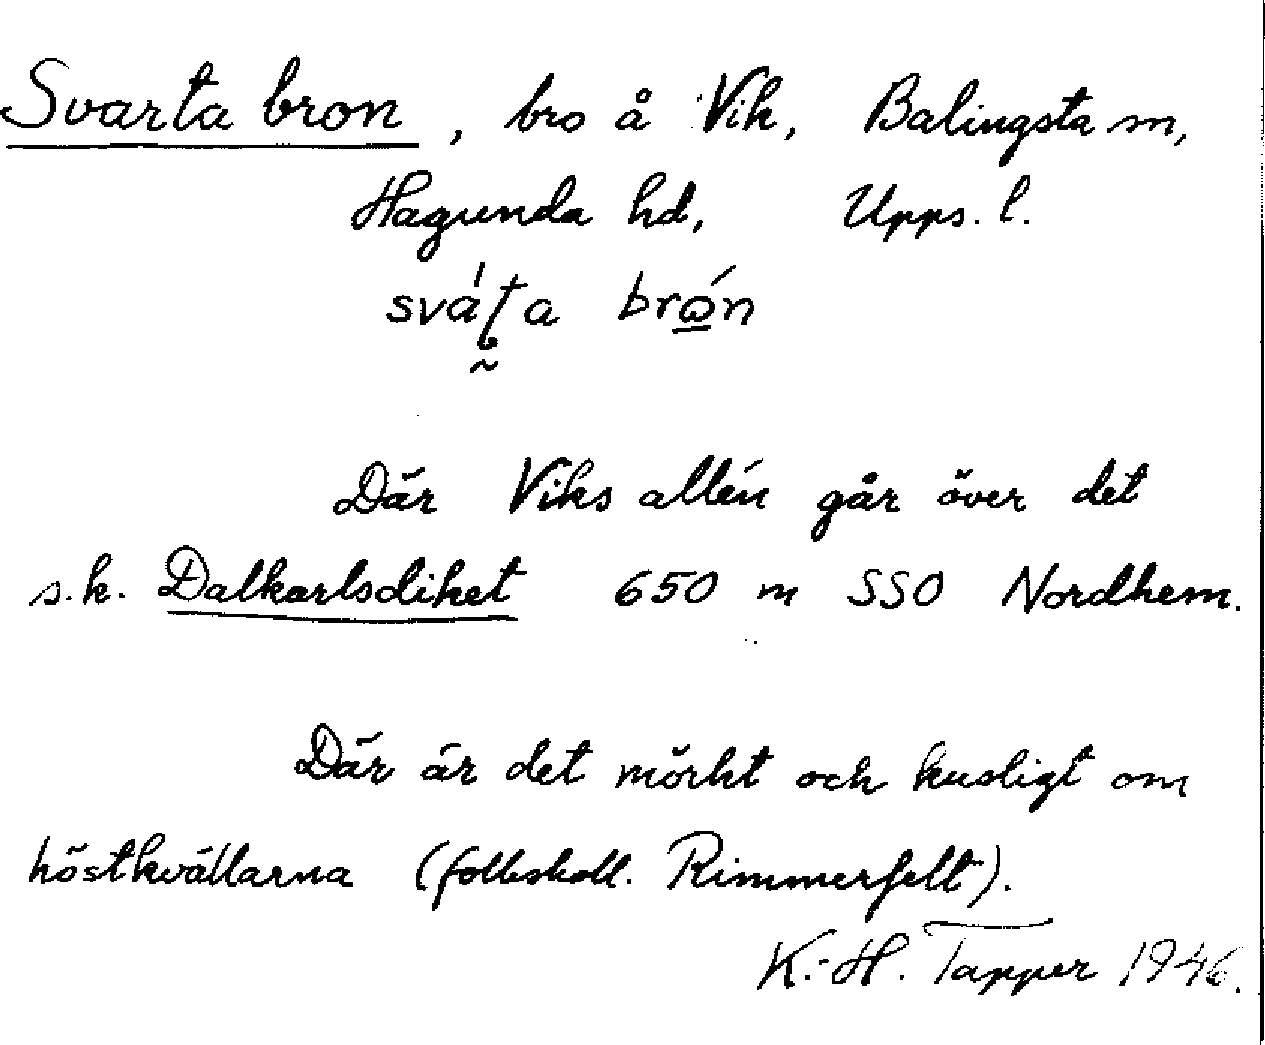 Svarta bron, bro å Vik, Balingsta sn,
Hagunda hd, Upps. l.
svát̰a brώ̲n
Där Viks allén går över det
s.k. Dalkarlsdiket 650 m SSO Nordhem.
Där är det mörkt och kusligt om
höstkvällarna (folkskoll. Rimmerfelt).
K.-H. Tapper 1946.